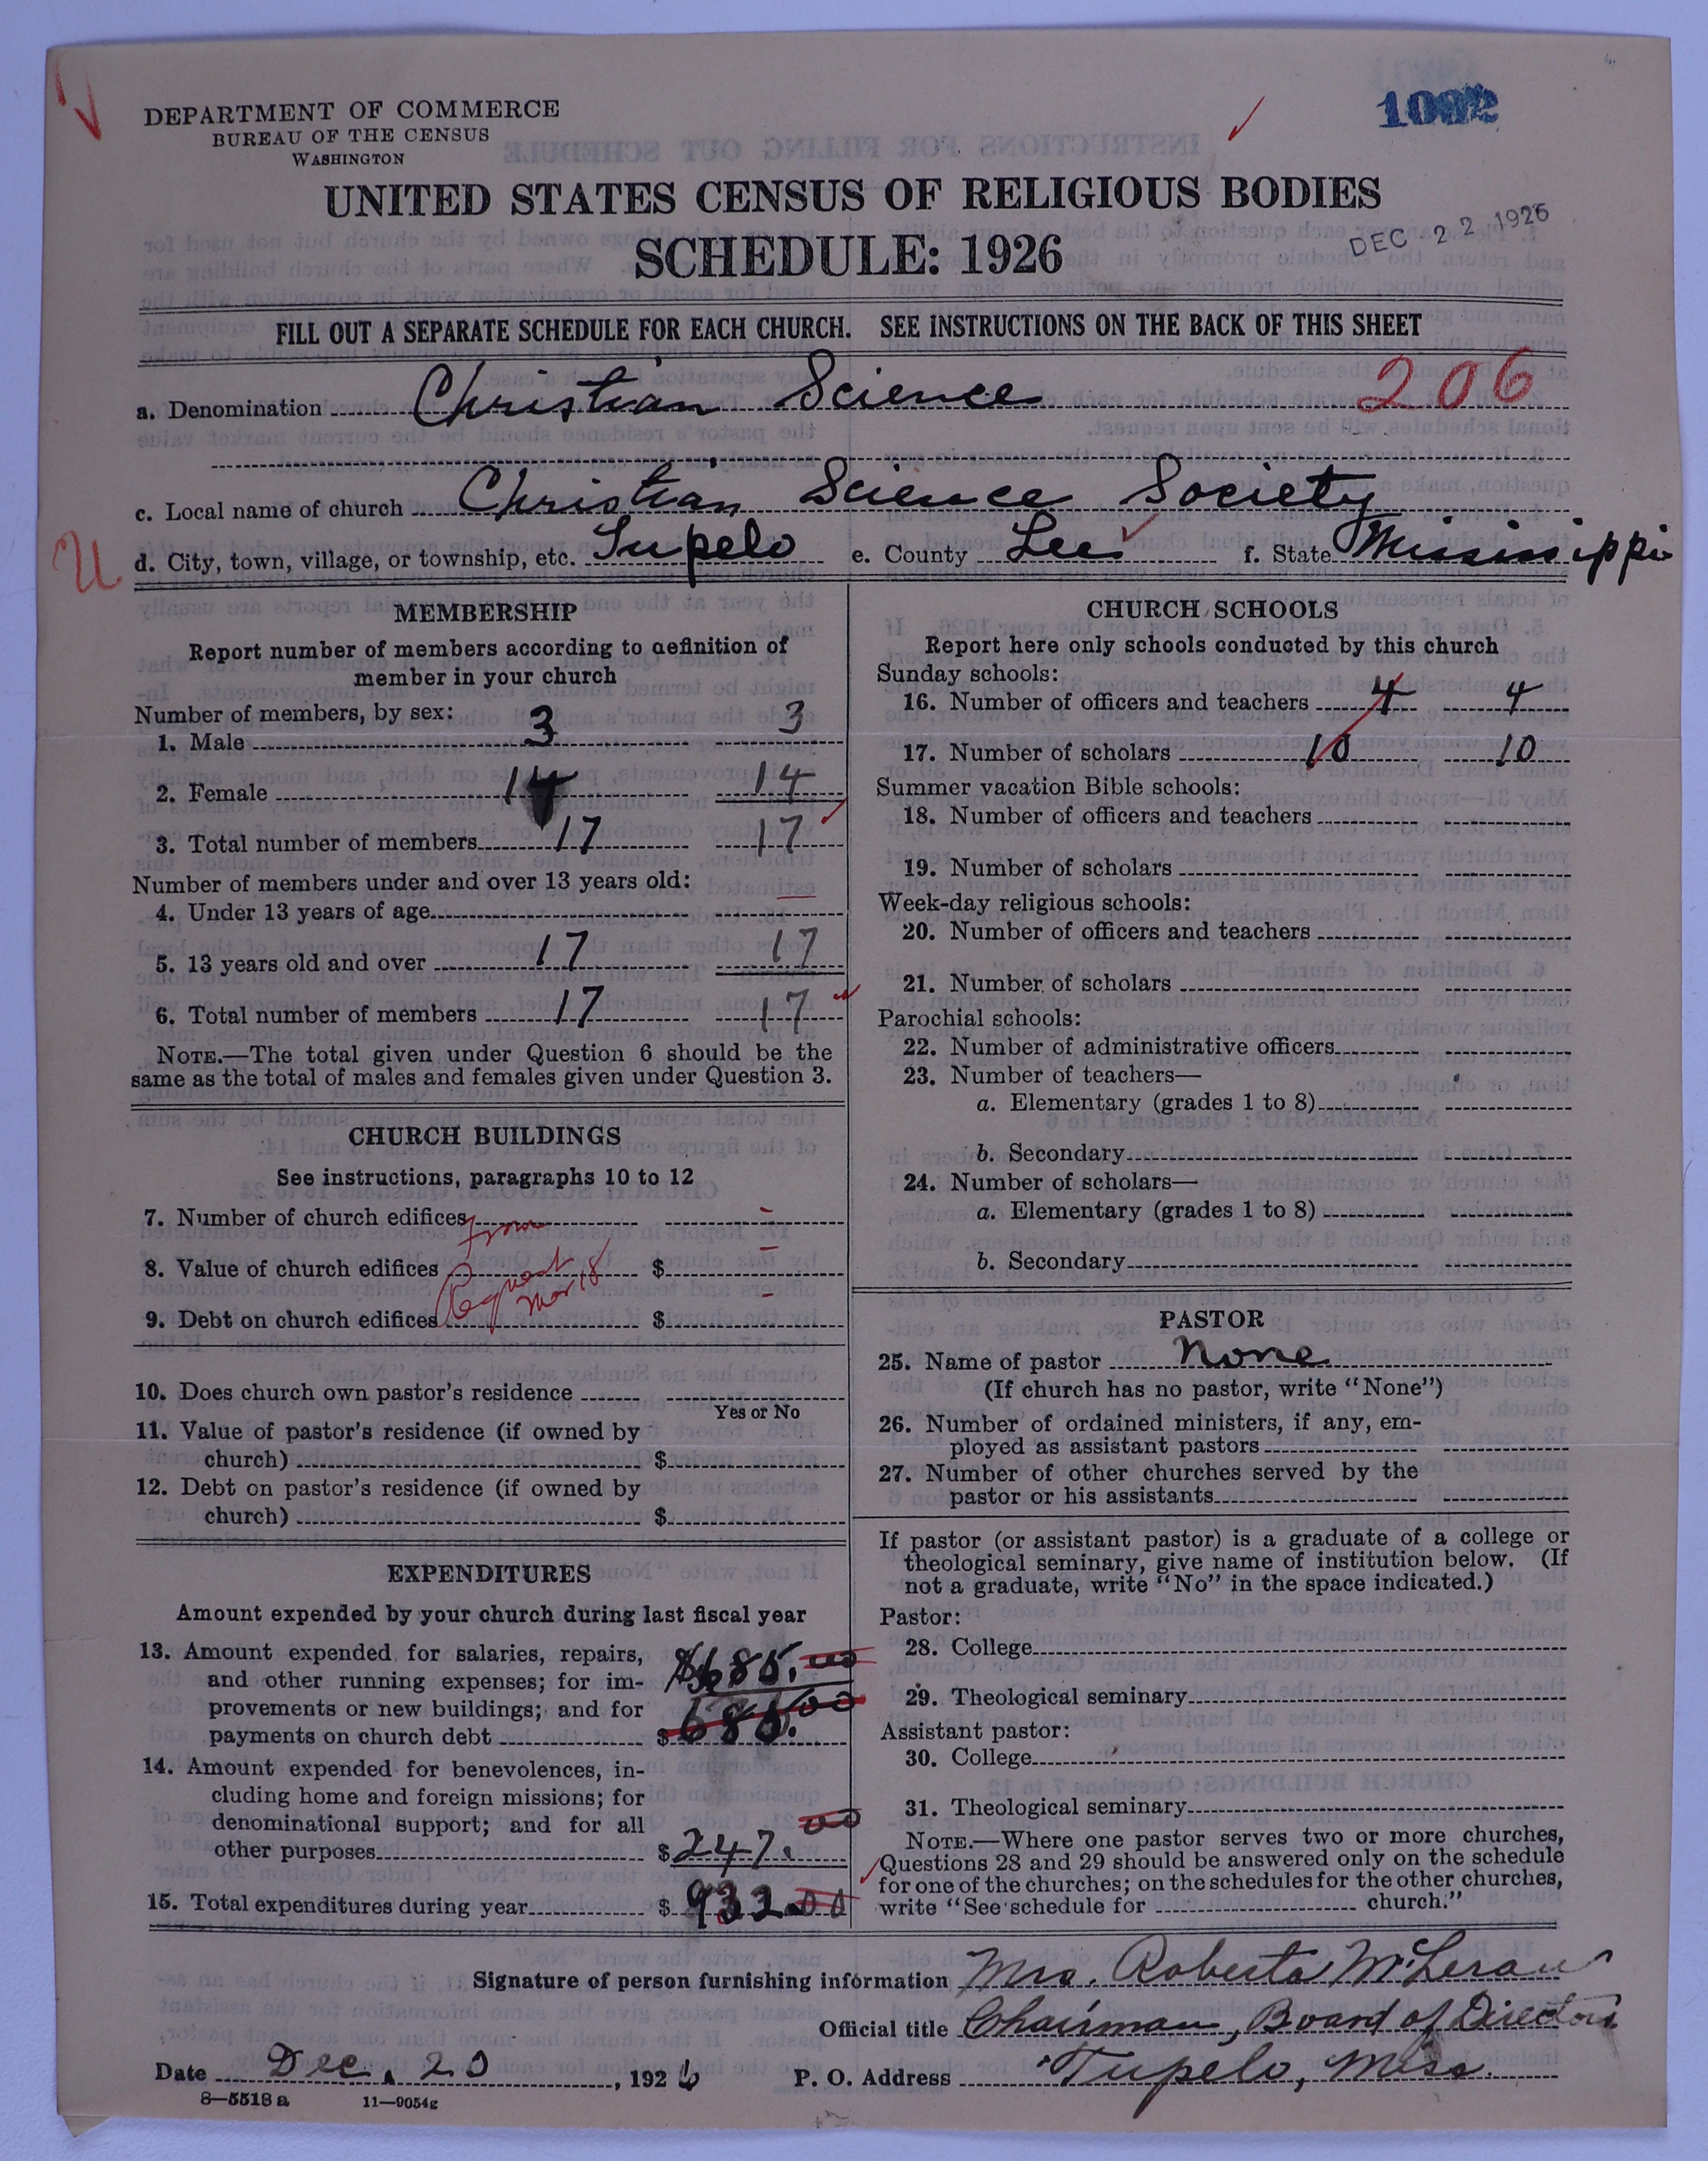 1092
DEPARTMENT OF COMMERCE
BUREAU OF THE CENSUS
WASHINGTON
UNITED STATES CENSUS OF RELIGIOUS BODIES
SCHEDULE: 1926
DEC 22 1926
FILL OUT A SEPARATE SCHEDULE FOR EACH CHURCH. SEE INSTRUCTIONS ON THE BACK OF THIS SHEET
a. Denomination Christian Science 206
c. Local name of church Christian Science Society
U
d. City, town, village, or township, etc. Tupelo e. County Lee f. State Mississippi
MEMBERSHIP
Report number of members according to definition of
member in your church
Number of members, by sex:
1. Male 3 3
2. Female 14 14
3. Total number of members 17 17
Number of members under and over 13 years old:
4. Under 13 years of age —
5. 13 years old and over 17 17
6. Total number of members 17 17
NOTE.—The total given under Question 6 should be the
same as the total of males and females given under Question 3.
CHURCH BUILDINGS
See instructions, paragraphs 10 to 12
7. Number of church edifices From –
8. Value of church edifices $ –
Request Mar 18
9. Debt on church edifices $ –
10. Does church own pastor's residence
Yes or No
11. Value of pastor's residence (if owned by
church) $
12. Debt on pastor's residence (if owned by
church) $
EXPENDITURES
Amount expended by your church during last fiscal year
13. Amount expended for salaries, repairs, $685.00
and other running expenses; for im-
provements or new buildings; and for
payments on church debt $685.00
14. Amount expended for benevolences, in-
cluding home and foreign missions; for
denominational support; and for all
other purposes $247.00
15. Total expenditures during year $932.00
CHURCH SCHOOLS
Report here only schools conducted by this church
Sunday schools:
16. Number of officers and teachers 4 4
17. Number of scholars 10 10
Summer vacation Bible schools:
18. Number of officers and teachers
19. Number of scholars
Week-day religious schools:
20. Number of officers and teachers
21. Number of scholars
Parochial schools:
22. Number of administrative officers
23. Number of teachers—
a. Elementary (grades 1 to 8)
b. Secondary
24. Number of scholars—
a. Elementary (grades 1 to 8)
b. Secondary
PASTOR
25. Name of pastor None
(If church has no pastor, write "None")
26. Number of ordained ministers, if any, em-
ployed as assistant pastors
27. Number of other churches served by the
pastor or his assistants
If pastor (or assistant pastor) is a graduate of a college or
theological seminary, give name of institution below. (If
not a graduate, write "No" in the space indicated.)
Pastor:
28. College
29. Theological seminary
Assistant pastor:
30. College
31. Theological seminary
NOTE.—Where one pastor serves two or more churches,
Questions 28 and 29 should be answered only on the schedule
for one of the churches; on the schedules for the other churches,
write "See schedule for church."
Signature of person furnishing information Mrs. Roberta
Official title Chairman, Board of Directors
Date Dec. 20, 1926 P. O. Address Tupelo, Miss.
8—5518 a 11—9054g